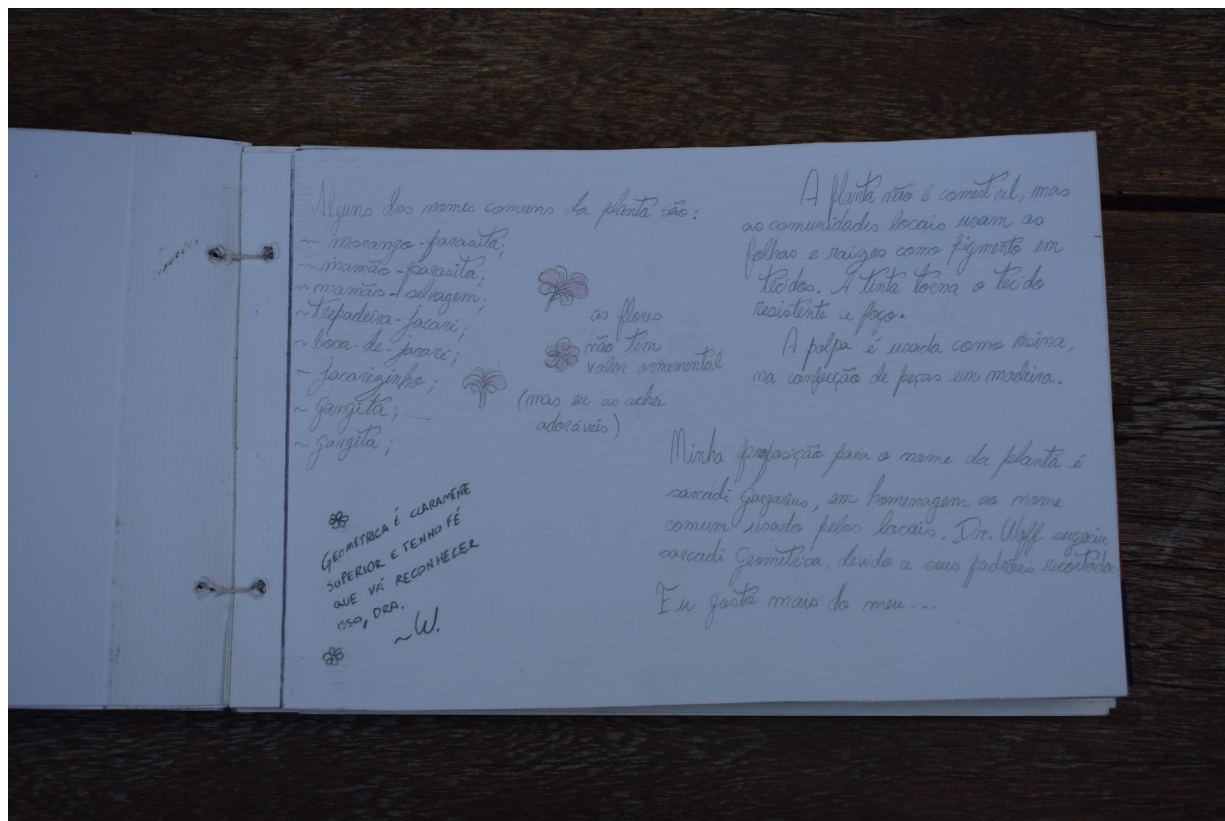 Alguns dos nomes comuns da planta são:
~ morango-parasita;
~ mamão-parasita;
~ mamão-selvagem;
~ trepadeira-jacaré;
~ boca-de-jacaré;
~ jacarezinho;
~ gangita;
~ gargita;
as flores
não tem
valor ornamental
(mas eu as achei
adoráveis)
GEOMETRICA É CLARAMENTE
SUPERIOR E TENHO FÉ
QUE VÁ RECONHECER
ISSO, DRA.
~W.
A planta não é comestível, mas
as comunidades locais usam as
folhas e raízes como pigmento em
tecidos. A tinta torna o tecido
resistente a fogo.
A polpa é usada como resina,
na confecção de peças em madeira.
Minha proposição para o nome da planta é
sarcadi Gargarius, em homenagem ao nome
comum usado pelos locais. Dr. Wolff sugeriu
sarcadi Geometrica, devido a seus padrões recortados
Eu gosto mais do meu...